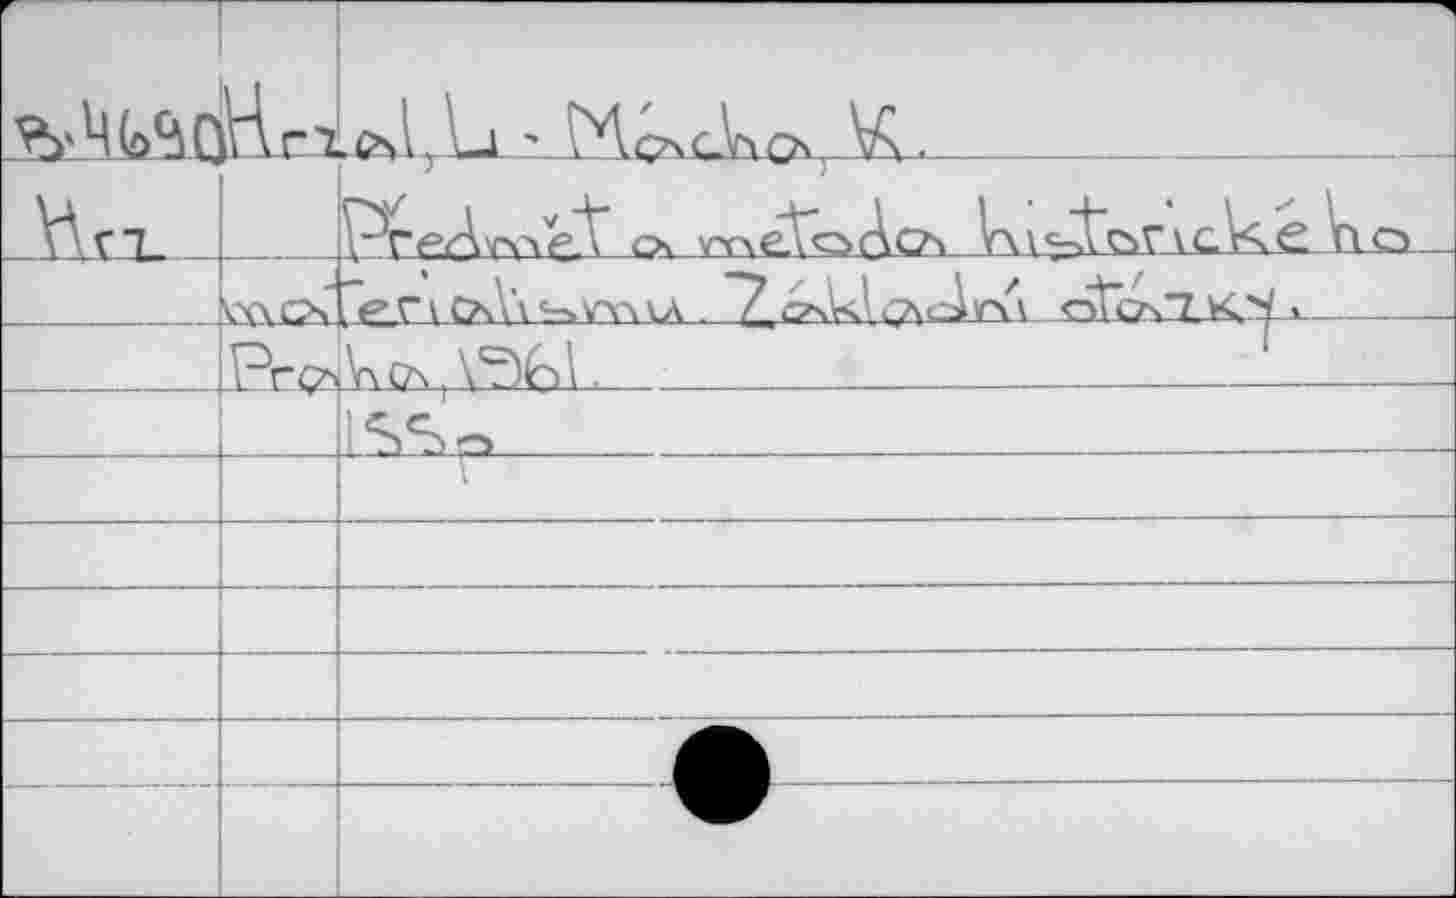 B-4690 Hrzal, L. - Mácha, K.
Hrz Předmět a metoda historického
materialismu. Základní otázky.
Praha, 1961.
155p